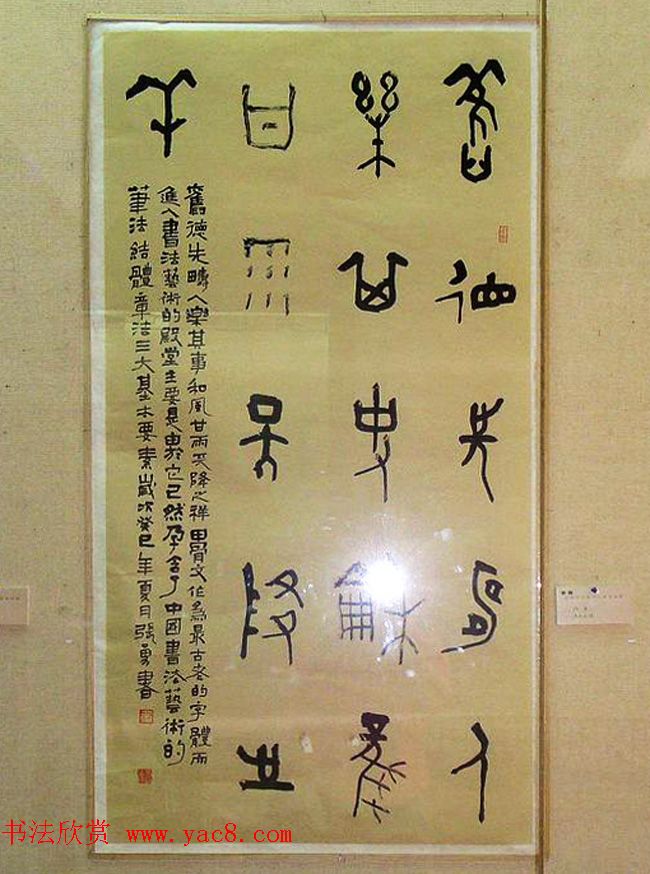 舊德先疇人
樂其事龢風
甘雨天降之
羊
舊德先疇人樂其事和風甘雨天降之祥甲骨文作為最古老的字體而
進入書法藝術的殿堂主要是由於它已然孕含了中國書法藝術的
筆法結體章法三大基本要素歲次癸巳年夏月張勇書
书法欣赏 www.yac8.com